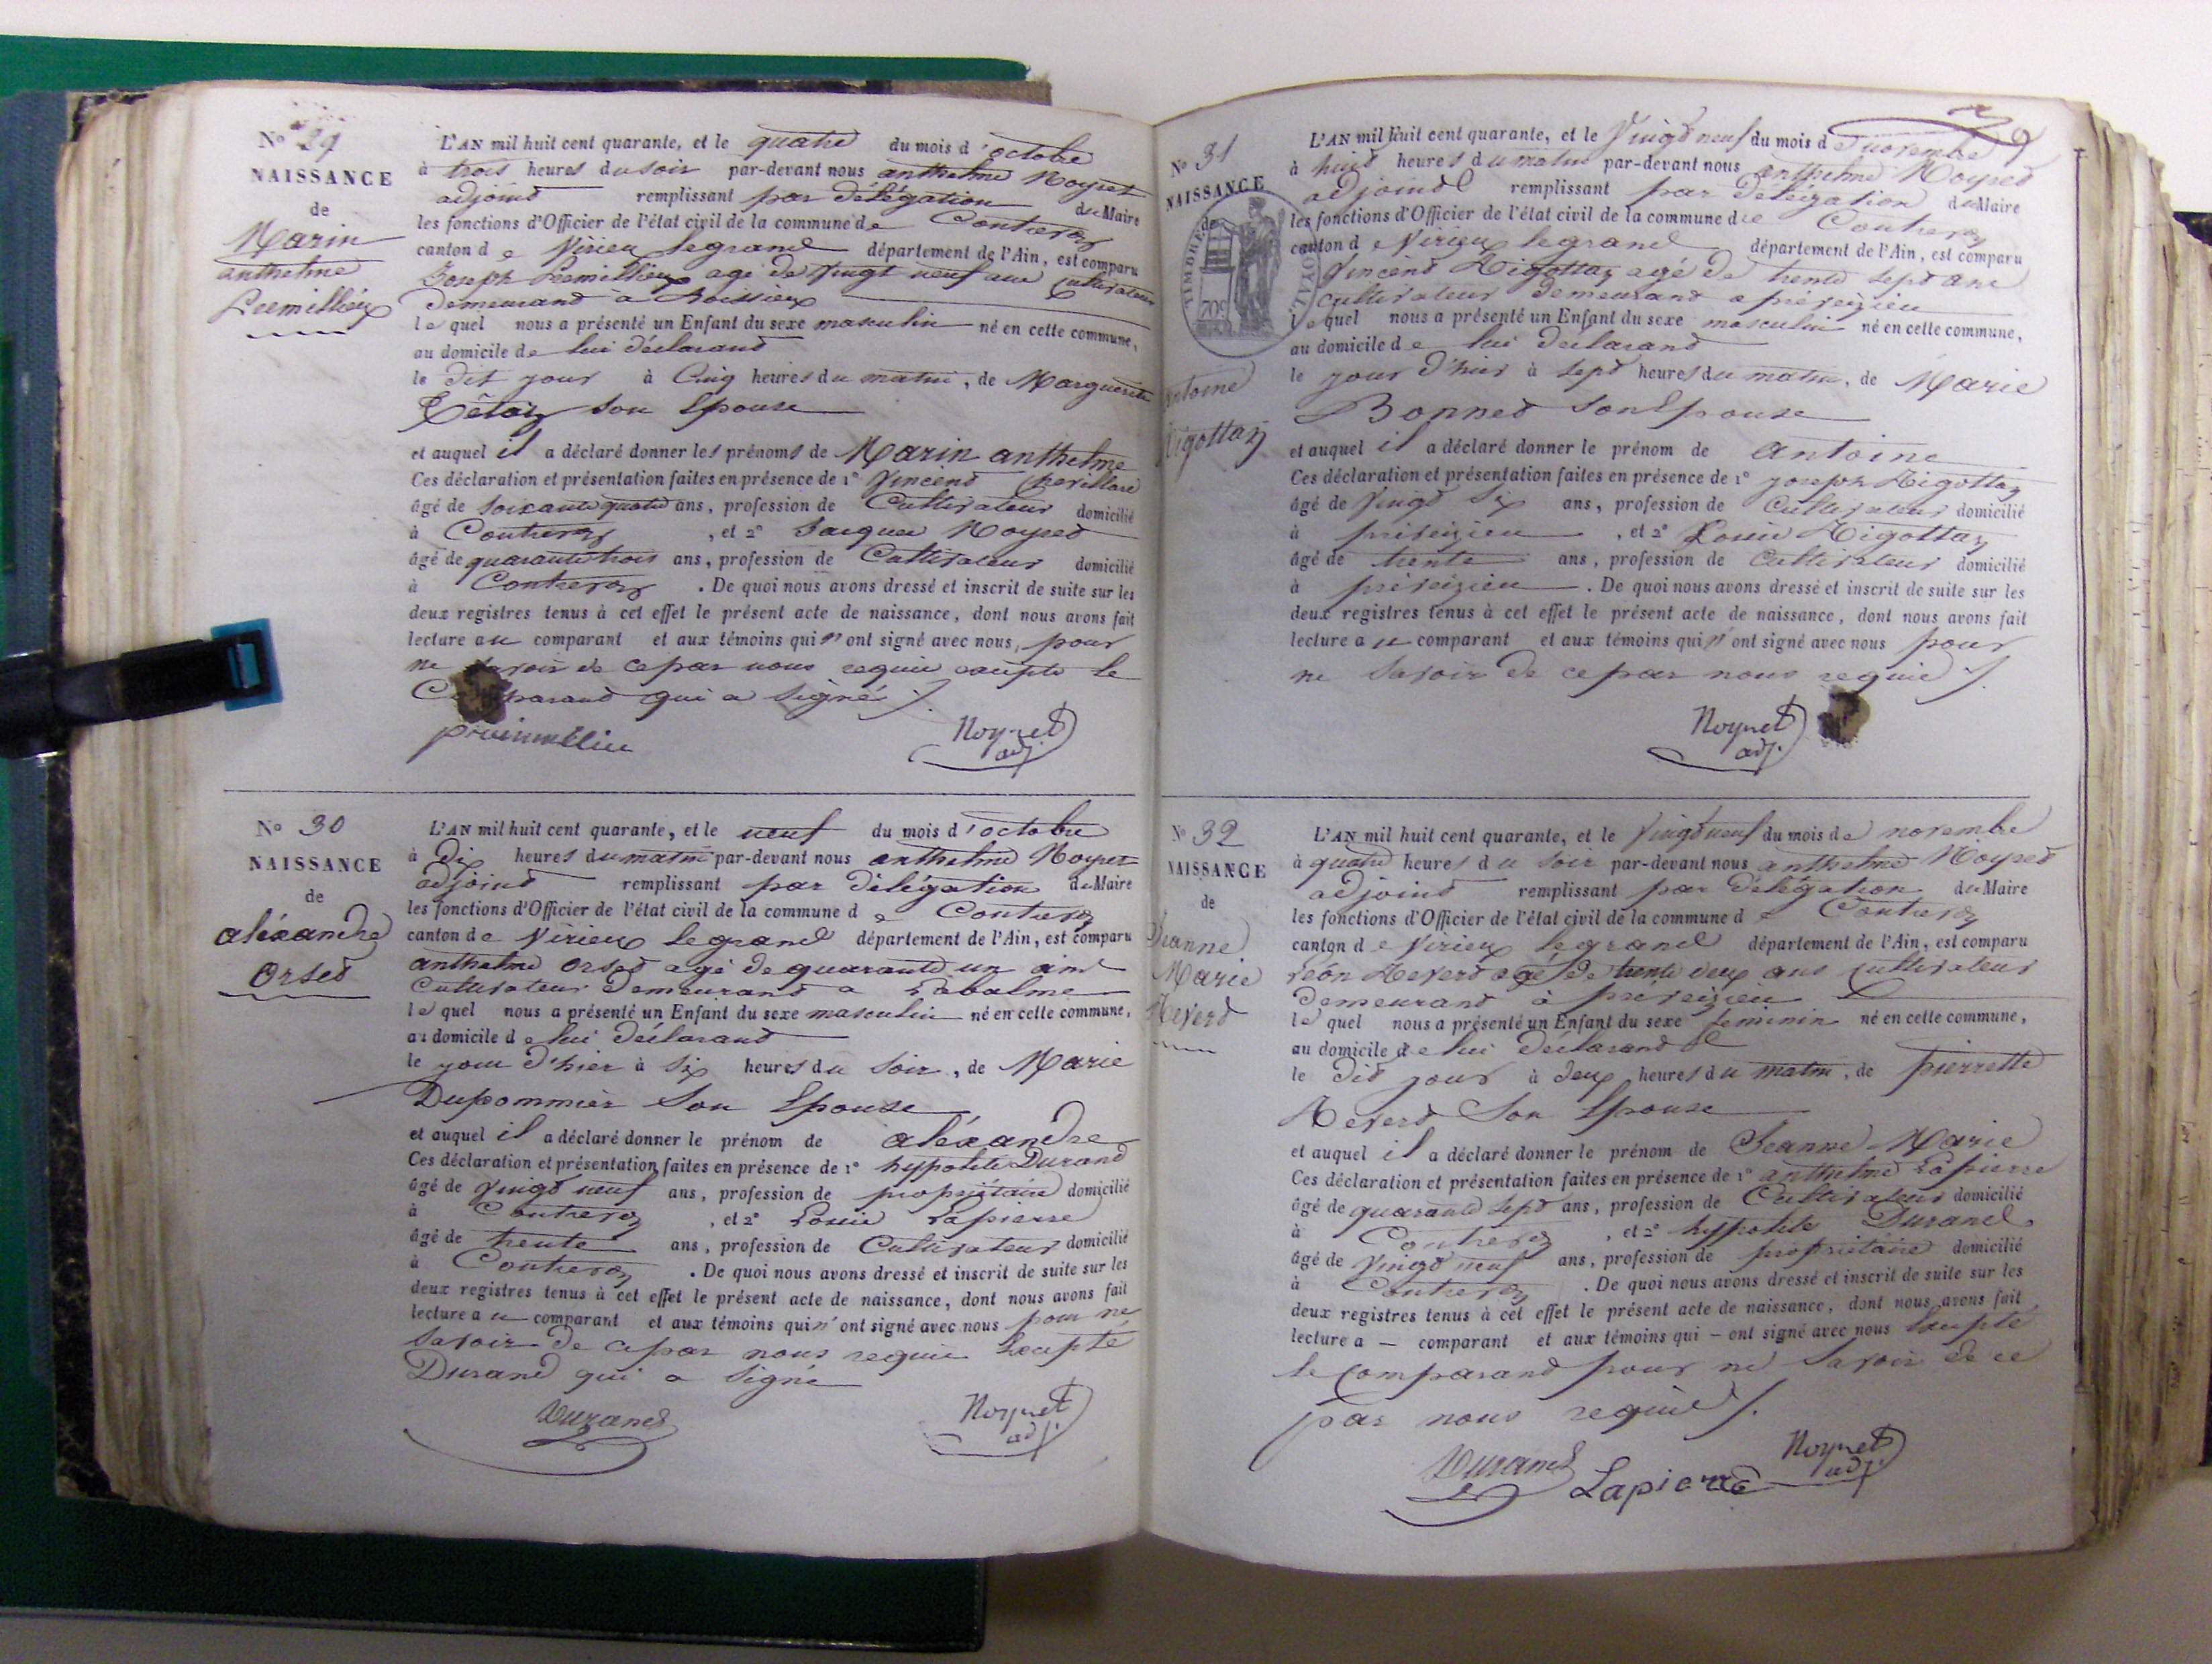 N° 29
NAISSANCE
de
Marin
anthelme
Premillieu
L'AN mil huit cent quarante, et le quatre du mois d'octobre
à trois heures du soir par-devant nous anthelme Noyret
adjoint remplissant par délégation du Maire
les fonctions d'Officier de l'état civil de la commune de Contrevoz
canton de Virieu legrand département de l'Ain, est comparu
Joseph Premillieu agé de vingt neuf ans cultivateur
demeurant a Boissieu
lequel nous a présenté un Enfant du sexe masculin né en cette commune,
au domicile de lui déclarant
le dit jour à Cinq heures du matin, de Marguerite
son Epouse
et auquel il a déclaré donner les prénoms de Marin anthelme
Ces déclaration et présentation faites en présence de 1° Vincent Chevillard
âgé de soixante quatre ans, profession de Cultivateur domicilié
à Contrevoz, et 2° Jacques Noyret
âgé de quarante trois ans, profession de Cultivateur domicilié
à Contrevoz. De quoi nous avons dressé et inscrit de suite sur les
deux registres tenus à cet effet le présent acte de naissance, dont nous avons fait
lecture au comparant et aux témoins qui n'ont signé avec nous, pour
ne savoir de ce par nous requis excepté le
Comparant qui a signé
Noyret
adj.
N° 30
NAISSANCE
de
aléxandre
Orset
L'AN mil huit cent quarante, et le neuf du mois d'octobre
à dix heures du matin par-devant nous anthelme Noyret
adjoint remplissant par délégation du Maire
les fonctions d'Officier de l'état civil de la commune de Contrevoz
canton de Virieu legrand département de l'Ain, est comparu
anthelme Orset agé de quarante un ans
Cultivateur demeurant a Labalme
lequel nous a présenté un Enfant du sexe masculin né en cette commune,
au domicile de lui déclarant
le jour d'hier à six heures du soir, de Marie
Dupommier son Epouse
et auquel il a déclaré donner le prénom de aléxandre
Ces déclaration et présentation faites en présence de 1° hyppolite Durand
âgé de vingt neuf ans, profession de propriétaire domicilié
à Contrevoz, et 2° Louis Lapierre
âgé de trente ans, profession de Cultivateur domicilié
à Contrevoz. De quoi nous avons dressé et inscrit de suite sur les
deux registres tenus à cet effet le présent acte de naissance, dont nous avons fait
lecture au comparant et aux témoins qui n'ont signé avec nous pour ne
savoir de ce par nous requis Excepté
Durand qui a signé
Durand
Noyret
adj.
N° 31
NAISSANCE
de
TIMBRE ROYAL
70c
Antoine
Rigottaz
L'AN mil huit cent quarante, et le vingt neuf du mois de novembre
à huit heures du matin par-devant nous anthelme Noyret
adjoint remplissant par délégation du Maire
les fonctions d'Officier de l'état civil de la commune de Contrevoz
canton de Virieu legrand département de l'Ain, est comparu
Vincent Rigottaz agé de trente sept ans
cultivateur demeurant a preveizieu
lequel nous a présenté un Enfant du sexe masculin né en cette commune,
au domicile de lui déclarant
le jour d'hier à sept heures du matin, de Marie
Bonnet son Epouse
et auquel il a déclaré donner le prénom de Antoine
Ces déclaration et présentation faites en présence de 1° joseph Rigottaz
âgé de vingt six ans, profession de Cultivateur domicilié
à preveizieu, et 2° Louis Rigottaz
âgé de trente ans, profession de Cultivateur domicilié
à preveizieu. De quoi nous avons dressé et inscrit de suite sur les
deux registres tenus à cet effet le présent acte de naissance, dont nous avons fait
lecture au comparant et aux témoins qui n'ont signé avec nous pour
ne savoir de ce par nous requis
Noyret
adj.
N° 32
NAISSANCE
de
Jeanne
Marie
Reverd
L'AN mil huit cent quarante, et le vingt neuf du mois de novembre
à quatre heures du soir par-devant nous anthelme Noyret
adjoint remplissant par délégation du Maire
les fonctions d'Officier de l'état civil de la commune de Contrevoz
canton de Virieu legrand département de l'Ain, est comparu
léon Reverd agé de trente deux ans cultivateur
demeurant à preveizieu
lequel nous a présenté un Enfant du sexe feminin né en cette commune,
au domicile de lui déclarant
le dit jour à deux heures du matin, de pierrette
Reverd son Epouse
et auquel il a déclaré donner le prénom de Jeanne Marie
Ces déclaration et présentation faites en présence de 1° anthelme Lapierre
âgé de quarante sept ans, profession de Cultivateur domicilié
à Contrevoz, et 2° hyppolite Durand
âgé de vingt neuf ans, profession de propriétaire domicilié
à Contrevoz. De quoi nous avons dressé et inscrit de suite sur les
deux registres tenus à cet effet le présent acte de naissance, dont nous avons fait
lecture a — comparant et aux témoins qui — ont signé avec nous Excepté
le Comparant pour ne savoir de ce
par nous requis
Durand Lapierre Noyret
adj.